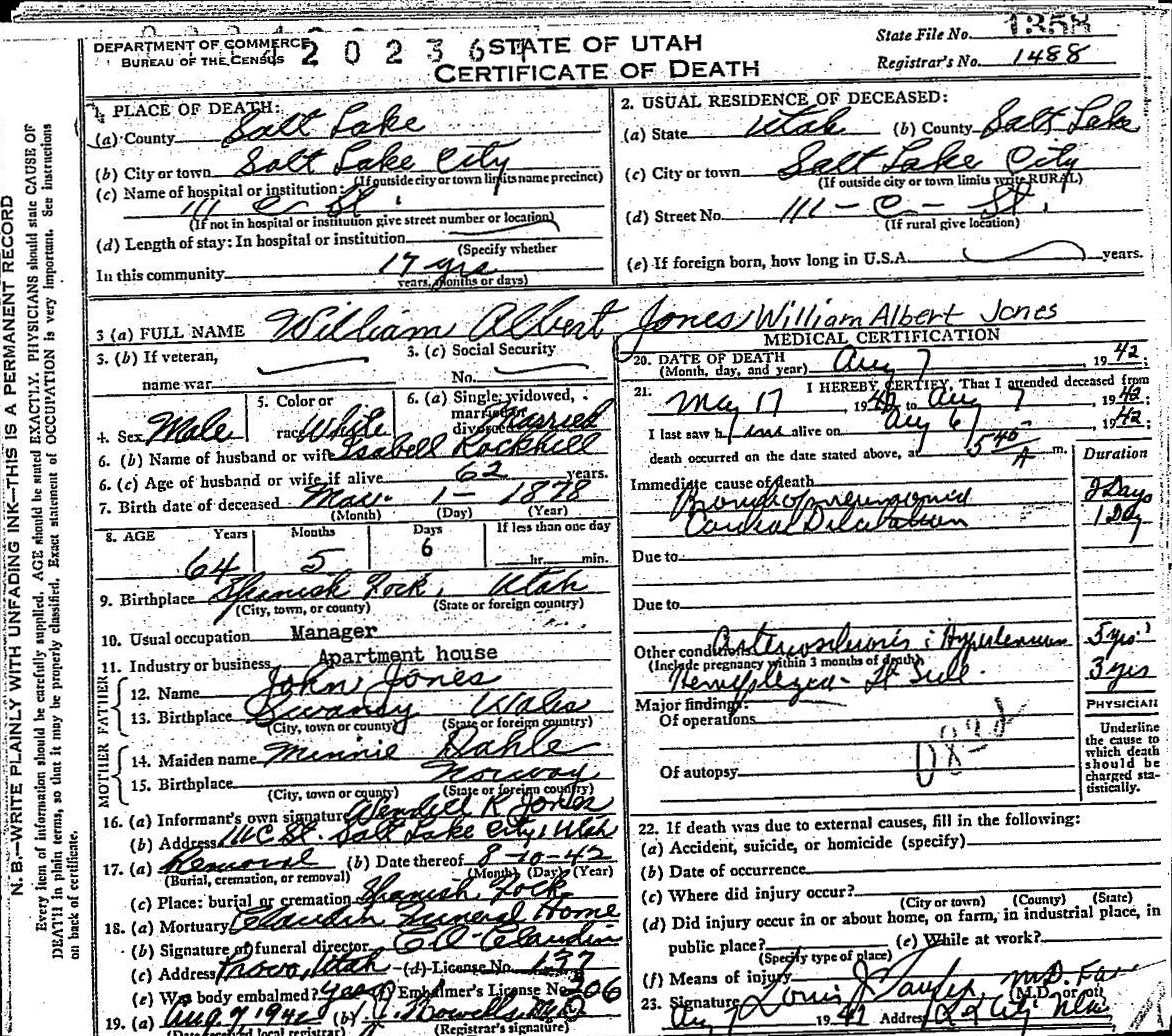 DEPARTMENT OF COMMERCE
BUREAU OF THE CENSUS
STATE OF UTAH
CERTIFICATE OF DEATH
State File No. 1358
Registrar's No. 1488
1. PLACE OF DEATH:
(a) County Salt Lake
(b) City or town Salt Lake City
(If outside city or town limits name precinct)
(c) Name of hospital or institution:
111 C St.
(If not in hospital or institution give street number or location)
(d) Length of stay: In hospital or institution
(Specify whether
In this community 17 yrs
years, months or days)
2. USUAL RESIDENCE OF DECEASED:
(a) State Utah (b) County Salt Lake
(c) City or town Salt Lake City
(If outside city or town limits write RURAL)
(d) Street No. 111 - C - St.
(If rural give location)
(e) If foreign born, how long in U.S.A. years.
3 (a) FULL NAME William Albert Jones William Albert Jones
3. (b) If veteran,
name war
3. (c) Social Security
No.
4. Sex Male
5. Color or
race White
6. (a) Single, widowed,
married or
divorced Married
6. (b) Name of husband or wife Isabell Rockhill
6. (c) Age of husband or wife if alive 62 years.
7. Birth date of deceased Mar. 1 - 1878
(Month) (Day) (Year)
8. AGE Years Months Days If less than one day
64 5 6 hr. min.
9. Birthplace Spanish Fork, Utah
(City, town, or county) (State or foreign country)
10. Usual occupation Manager
11. Industry or business Apartment house
FATHER
12. Name John Jones
13. Birthplace Swansy Wales
(City, town or county) (State or foreign country)
MOTHER
14. Maiden name Minnie Dahle
15. Birthplace Norway
(City, town or county) (State or foreign country)
16. (a) Informant's own signature Wendell R Jones
(b) Address 111 C St. Salt Lake City, Utah
17. (a) Removal (b) Date thereof 8-10-42
(Burial, cremation, or removal) (Month) (Day) (Year)
(c) Place: burial or cremation Spanish Fork
18. (a) Mortuary Claudin Funeral Home
(b) Signature of funeral director Claudin
(c) Address Provo, Utah (d) License No. 137
(e) Was body embalmed? yes (f) Embalmer's License No. 206
19. (a) Aug 7 1942 (b) M.D.
(Date received local registrar) (Registrar's signature)
MEDICAL CERTIFICATION
20. DATE OF DEATH Aug 7 1942;
(Month, day, and year)
21. I HEREBY CERTIFY, That I attended deceased from
May 17 1942 to Aug 7 1942
I last saw him alive on Aug 6 1942
death occurred on the date stated above, at 5 45 A m.
Duration
Immediate cause of death
Bronchopneumonia 2 Days
Cardiac Dilatation 1 Day
Due to
Due to
Other conditions Arteriosclerosis & Hypertension 5 yrs.
(Include pregnancy within 3 months of death)
Hemiplegia 3 yrs
Major findings:
Of operations
Of autopsy
PHYSICIAN
Underline
the cause to
which death
should be
charged sta-
tistically.
22. If death was due to external causes, fill in the following:
(a) Accident, suicide, or homicide (specify)
(b) Date of occurrence
(c) Where did injury occur?
(City or town) (County) (State)
(d) Did injury occur in or about home, on farm, in industrial place, in
public place? (e) While at work?
(Specify type of place)
(f) Means of injury
23. Signature Louis J M.D.
(M.D. or
Aug 7 1942 Address
N. B.—WRITE PLAINLY WITH UNFADING INK—THIS IS A PERMANENT RECORD
Every item of information should be carefully supplied. AGE should be stated EXACTLY. PHYSICIANS should state CAUSE OF
DEATH in plain terms, so that it may be properly classified. Exact statement of OCCUPATION is very important. See instructions
on back of certificate.